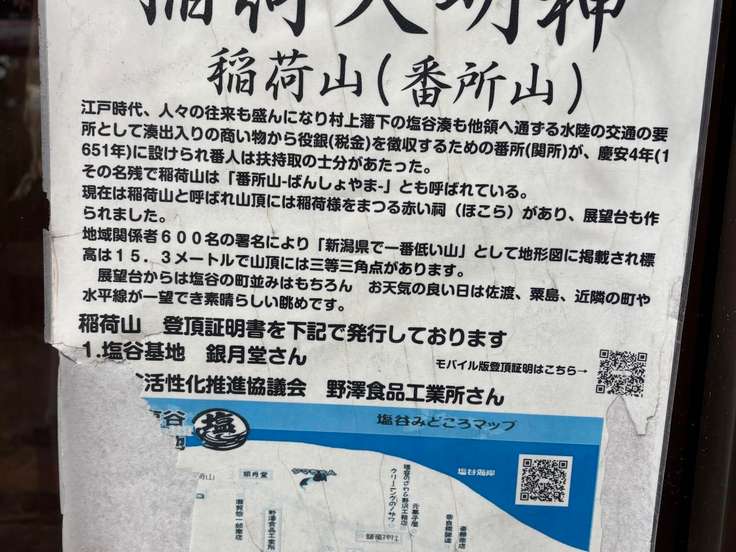 稲荷大明神
稲荷山(番所山)
江戸時代、人々の往来も盛んになり村上藩下の塩谷湊も他領へ通ずる水陸の交通の要
所として湊出入りの商い物から役銀(税金)を徴収するための番所(関所)が、慶安4年(1
651年)に設けられ番人は扶持取の士分があたった。
その名残で稲荷山は「番所山-ばんしょやま-」とも呼ばれている。
現在は稲荷山と呼ばれ山頂には稲荷様をまつる赤い祠（ほこら）があり、展望台も作
られました。
地域関係者６００名の署名により「新潟県で一番低い山」として地形図に掲載され標
高は１５．３メートルで山頂には三等三角点があります。
展望台からは塩谷の町並みはもちろん　お天気の良い日は佐渡、粟島、近隣の町や
水平線が一望でき素晴らしい眺めです。
稲荷山　登頂証明書を下記で発行しております
1.塩谷基地　銀月堂さん
モバイル版登頂証明はこちら→
活性化推進協議会　野澤食品工業所さん
塩谷
塩
塩谷みどころマップ
塩谷海岸
荷山
銀月堂
野澤食品工業所